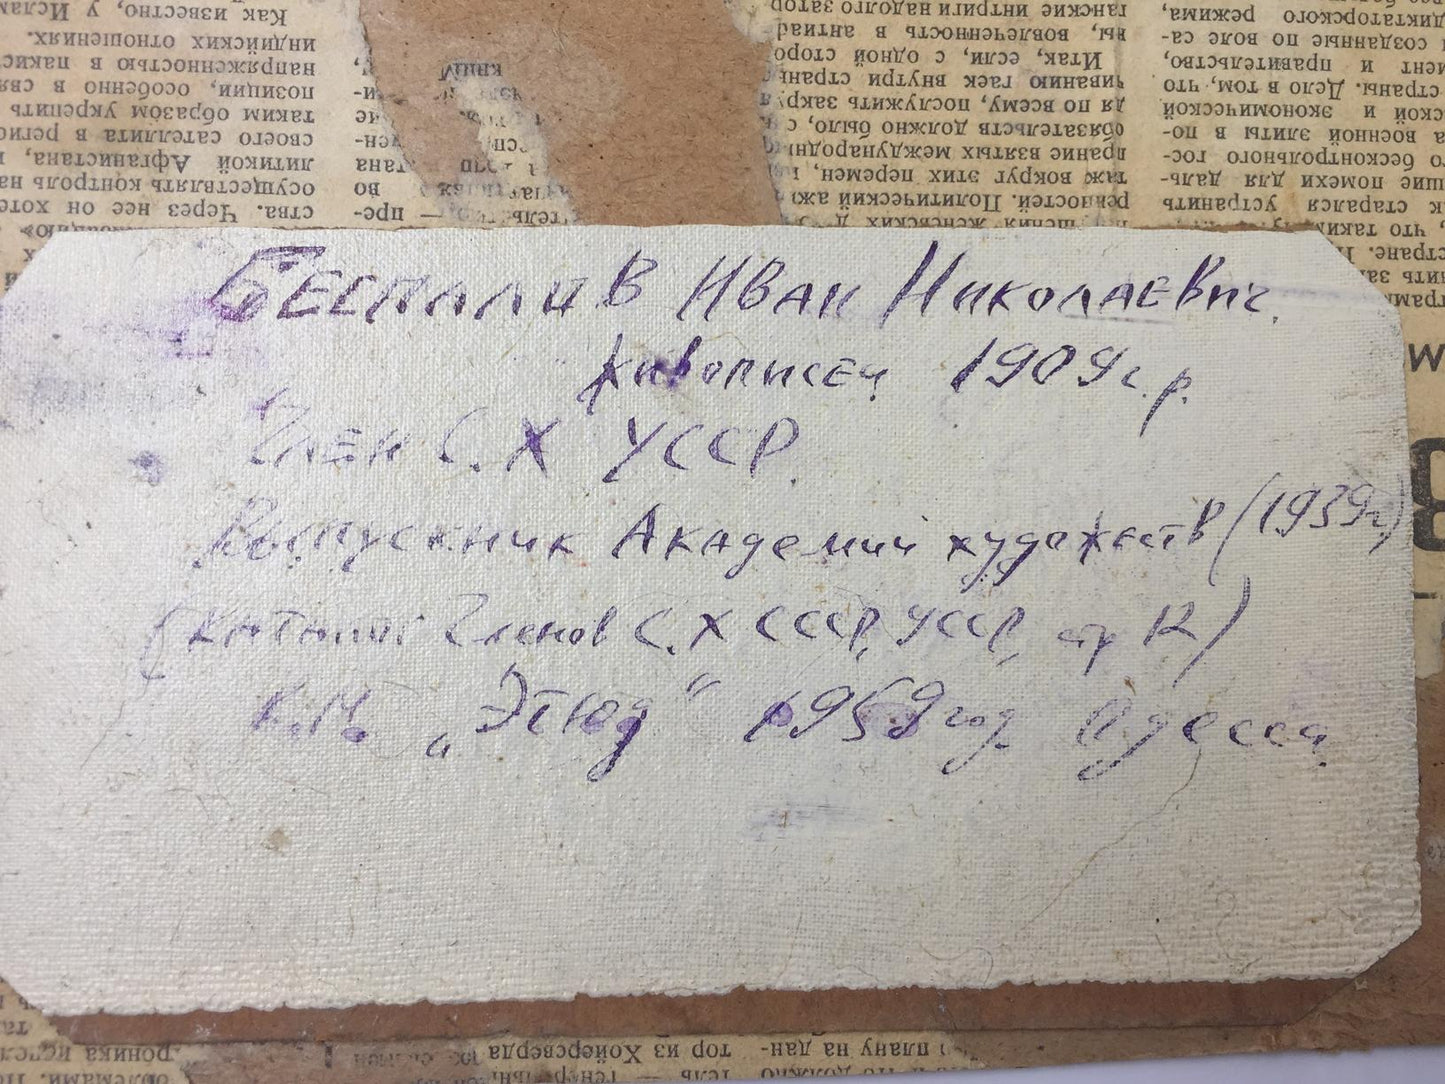 Беспалов Иван Николаевич.
живописец 1909 г.р.
Член С.Х УССР.
Выпускник Академии художеств (1939г.)
(Каталог Членов С.Х СССР, УССР, стр 12)
К.М. „Этюд" 1959 год Одесса.
Как известно, у Ислам
индийских отношениях.
напряженностью в пакис
позиции, особенно в свя
таким образом укрепить
своего сателлита в регио
литикой Афганистана,
осуществлять контроль на
ства. Через нее он хоте
ганские интриги надолго затор
вы, вовлеченность в антиаф
Итак, если, с одной сторо
чиванию гаек внутри стран
для по всему, послужить закру
обязательств должно было, с
врание взятых международн
таж вокруг этих перемен,
ревностей. Политический аж
диктаторского режима,
и созданные по воле са-
мент и правительство,
страны. Дело в том, что
ской и экономической
а военной элиты в по-
о бесконтрольного гос-
шие помехи для даль-
к старался устранить
, что таким
стране.
роника
облемами.
тор из Хойерсверда
тель — генераль
плану на дан-